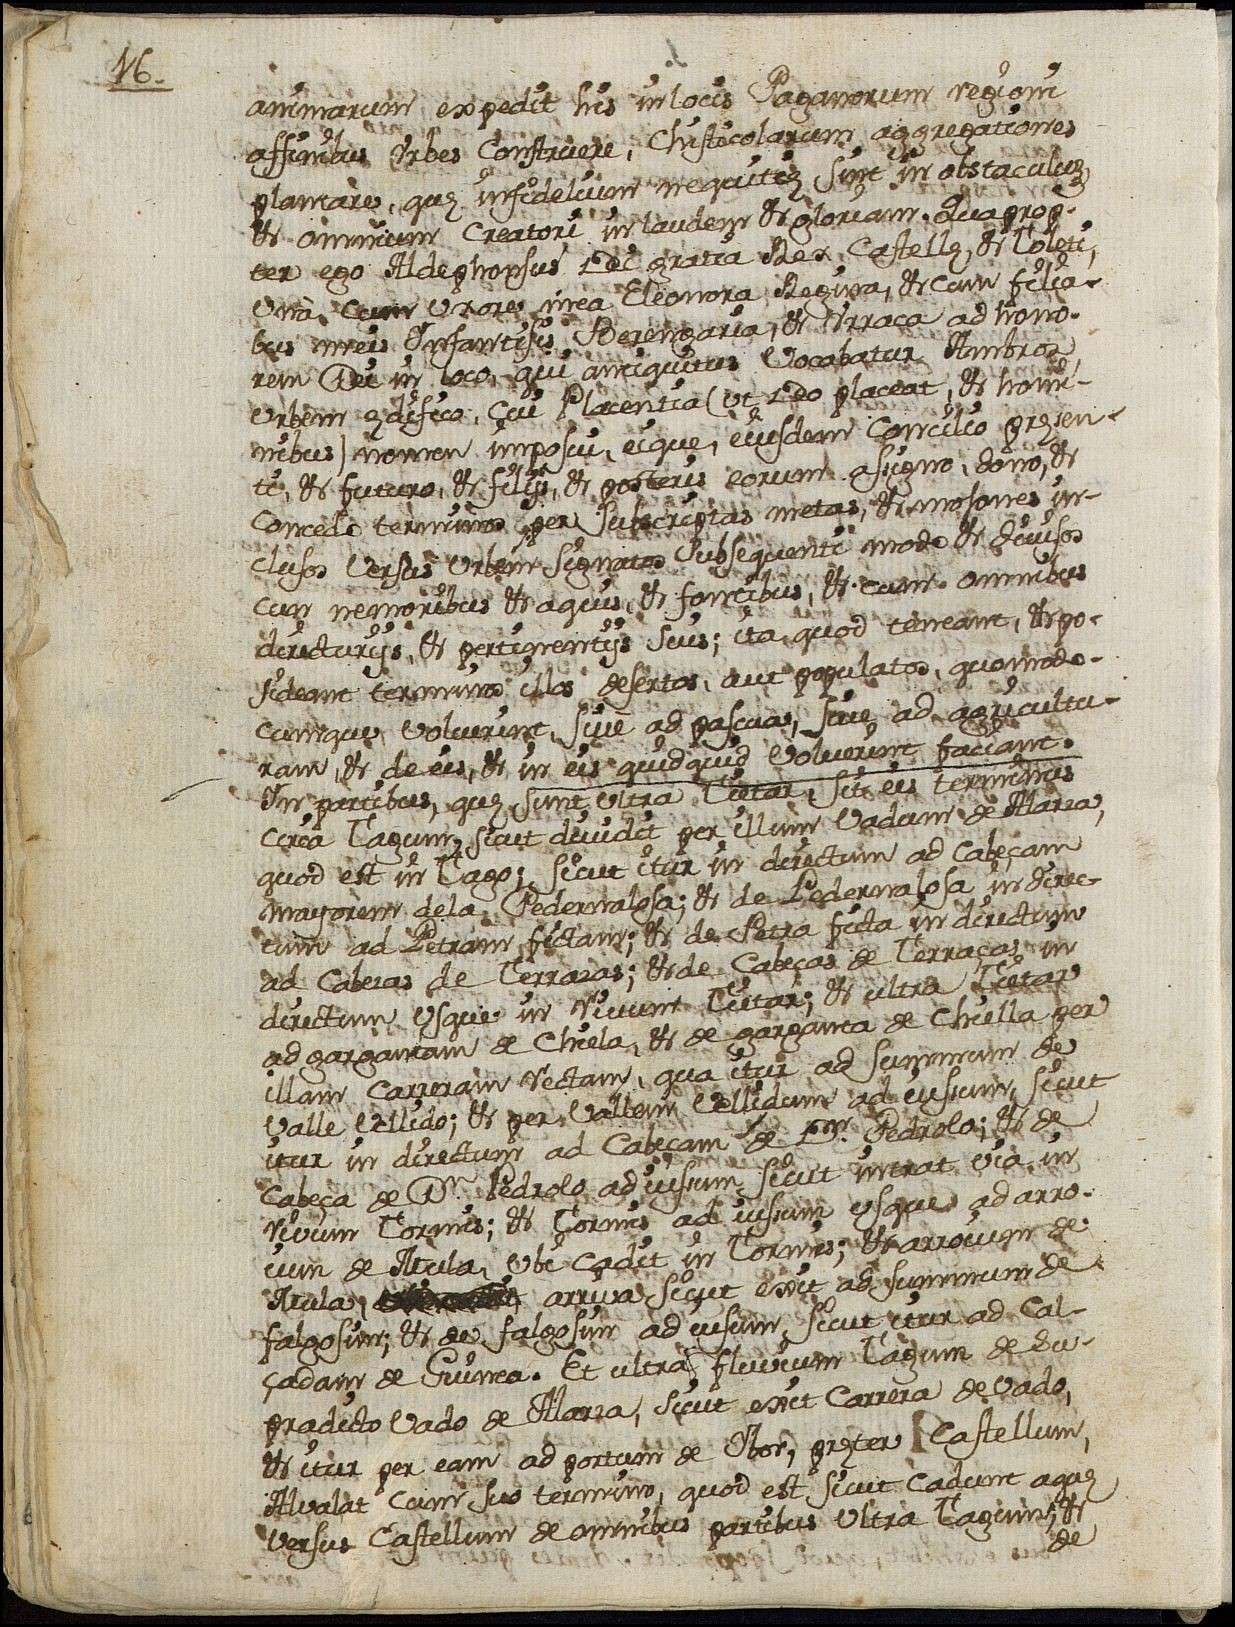 16.
animarum expedit his in locis Paganorum regioni
affinibus Vrbes Construere, Christicolarum aggregationes
plantare, quę infidelium nequitię sint in obstaculum,
& omnium Creatori in laudem & gloriam. Quaprop-
ter ego Aldephonsus Dei gratia Rex Castellę, & Toleti,
vna cum vxore mea Eleonora Regina, & cum filia-
bus meis Infantisis Berengaria, & Vrraca ad hono-
rem Dei in loco, qui antiquitus Vocabatur Ambroz,
Vrbem ędifico, cui Placentia (vt Deo placeat, & homi-
nibus) nomen imposui, eique, eiusdem Concilio pręsen-
ti, & futuro, & filijs, & posteris eorum asigno, dono, &
Concedo terminos per subscriptas metas, & mosones in-
clusos Versus Vrbem signatos subsequenti modo & diuisos
cum nemoribus & aquis, & fontibus, & cum omnibus
directurijs, & pertinentijs suis; ita quod teneant, & po-
sideant terminos illos desertos, aut populatos, quomodo-
cumque Voluerint, siue ad pascua, siue ad agricultu-
ram, & de eis, & in eis quidquid Voluerint faciant.
In partibus, quę sunt vltra Tietar, sit eis terminus
circa Tagum, sicut diuidit per illum Vadum de Alarza,
quod est in Tago; sicut itur in directum ad Cabeçam
mayorem dela Pedernalosa; & de Pedernalosa in direc-
tum ad Petram fictam; & de Petra ficta in directum
ad Cabezas de Terrazas; & de Cabeças de Terraças in
directum vsque in riuum Tietar; & ultra Tietar
ad gargantam de Chiela, & de garganta de Chiella per
illam Carreram rectam, qua itur ad summum de
Valle Vellido; & per Vallem Vellidum ad iussum, sicut
itur in directum ad Cabeçam de Dn. Pedrolo; & de
Cabeça de Dn. Pedrolo ad iusum sicut intrat via in
riuum Tormis; & Tormis ad iusum vsque ad arro-
ium de Auila, Vbi Cadit in Tormis; & arroium de
Auila arriua sicut exit ad summum de
falgosim; & de falgosim ad iusum, sicut itur ad Cal-
çadam de Guinea. Et ultra fluuium Tagum de su-
pradicto Vado de Alarza, sicut exit Carrera de Vado,
& itur per eam ad portum de Ibor, pręter Castellum,
Alualat Cum suo termino, quod est sicut Cadunt aquę
Versus Castellum de omnibus partibus Vltra Tagum; &
de